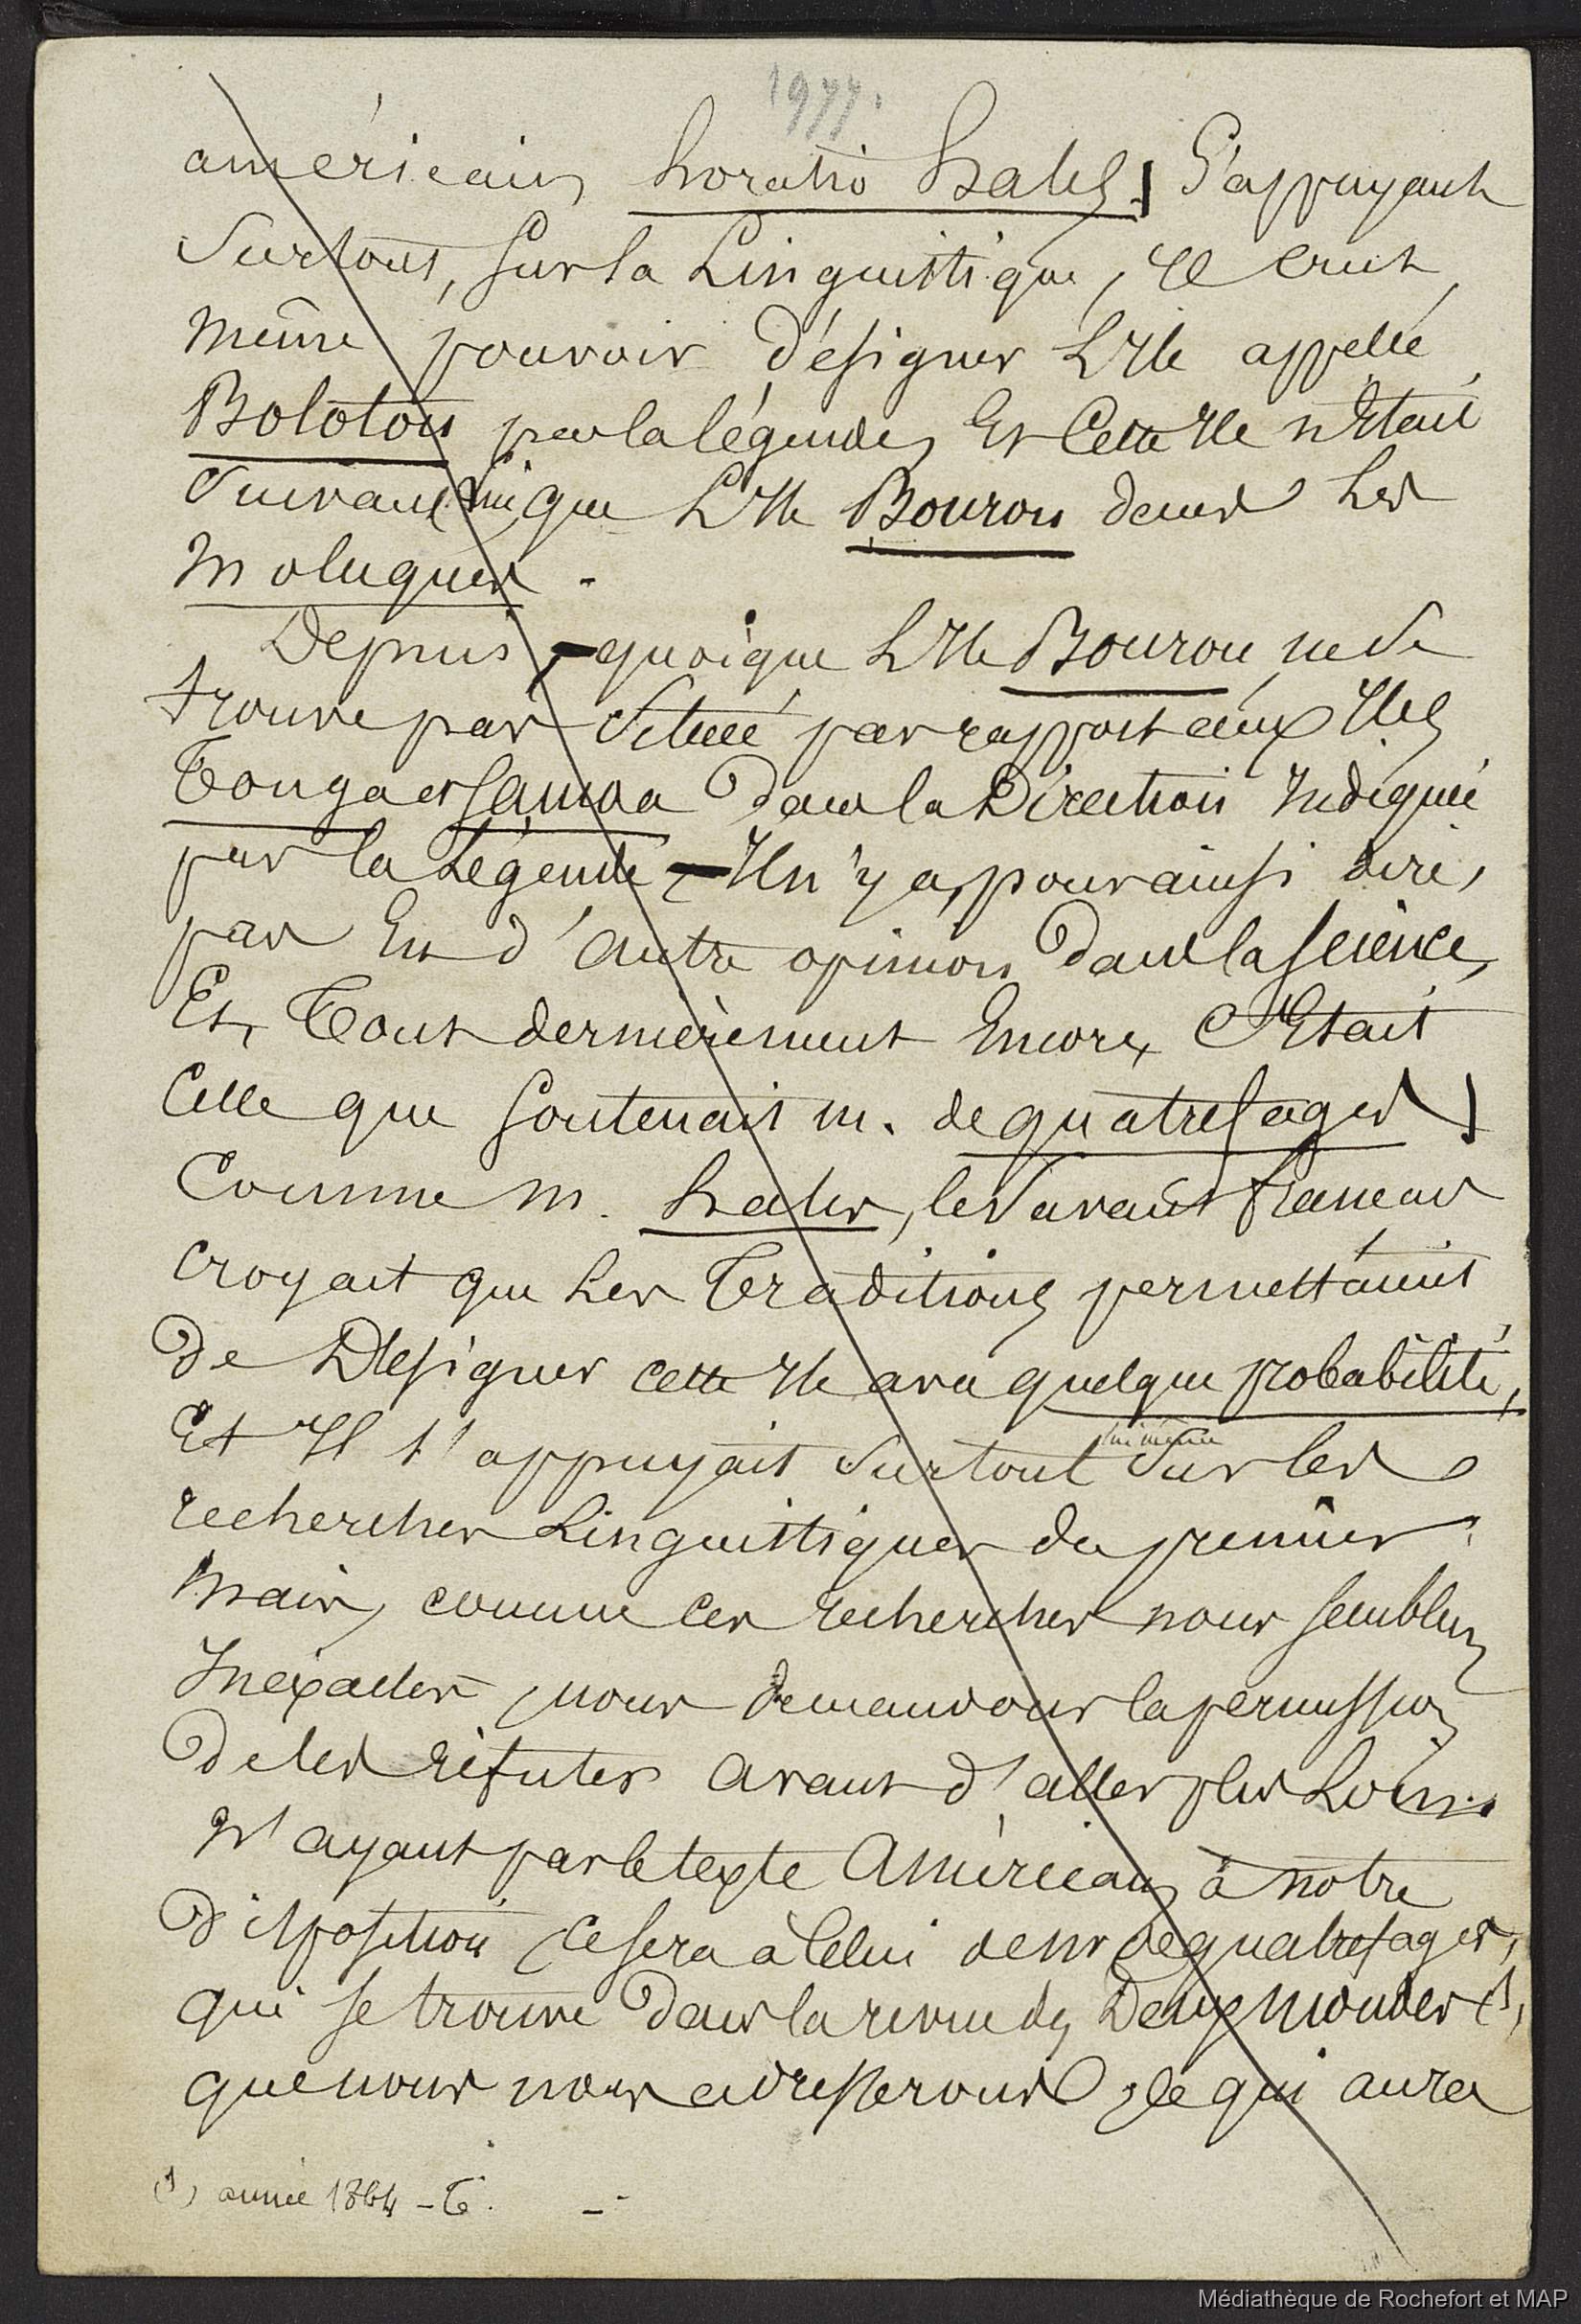 1977.
américain Horatio Hales; S'appuyant
Surtout, Sur la Linguistique, Il Crut
même pouvoir désigner L'Ile appellée
Bolotou par la légende, Et Cette Ile n'était
Suivant lui que L'Ile Bourou dans Les
Moluques.
Depuis, - quoique L'Ile Bourou ne Se
trouve pas Située par rapport aux Iles
Tonga et Samoa dans la Direction Indiquée
par la Légende - Il n'y a, pour ainsi dire,
pas Eu d'autre opinion dans la Science,
Et, Tout dernièrement Encore, C'Etait
Celle que Soutenait m. de quatrefages;
Comme M. hales, le Savant Français
Croyait que Les Traditions permettaient
de Désigner cette Ile avec quelque probabilité,
Et Il s'appuyait Surtout lui même Sur les
recherches Linguistiques du premier.
Mais, comme Ces recherches nous Semblent
Inexactes, nous demandons la permission
de les réfuter avant d'aller plus Loin.
N'ayant pas le texte Américain à notre
disposition, Ce Sera à Celui de Mr de quatrefages,
qui Se trouve dans la revue des Deux Mondes (1),
que nous nous adresserons, Ce qui aura
(1) année 1864 - T. -
Médiathèque de Rochefort et MAP